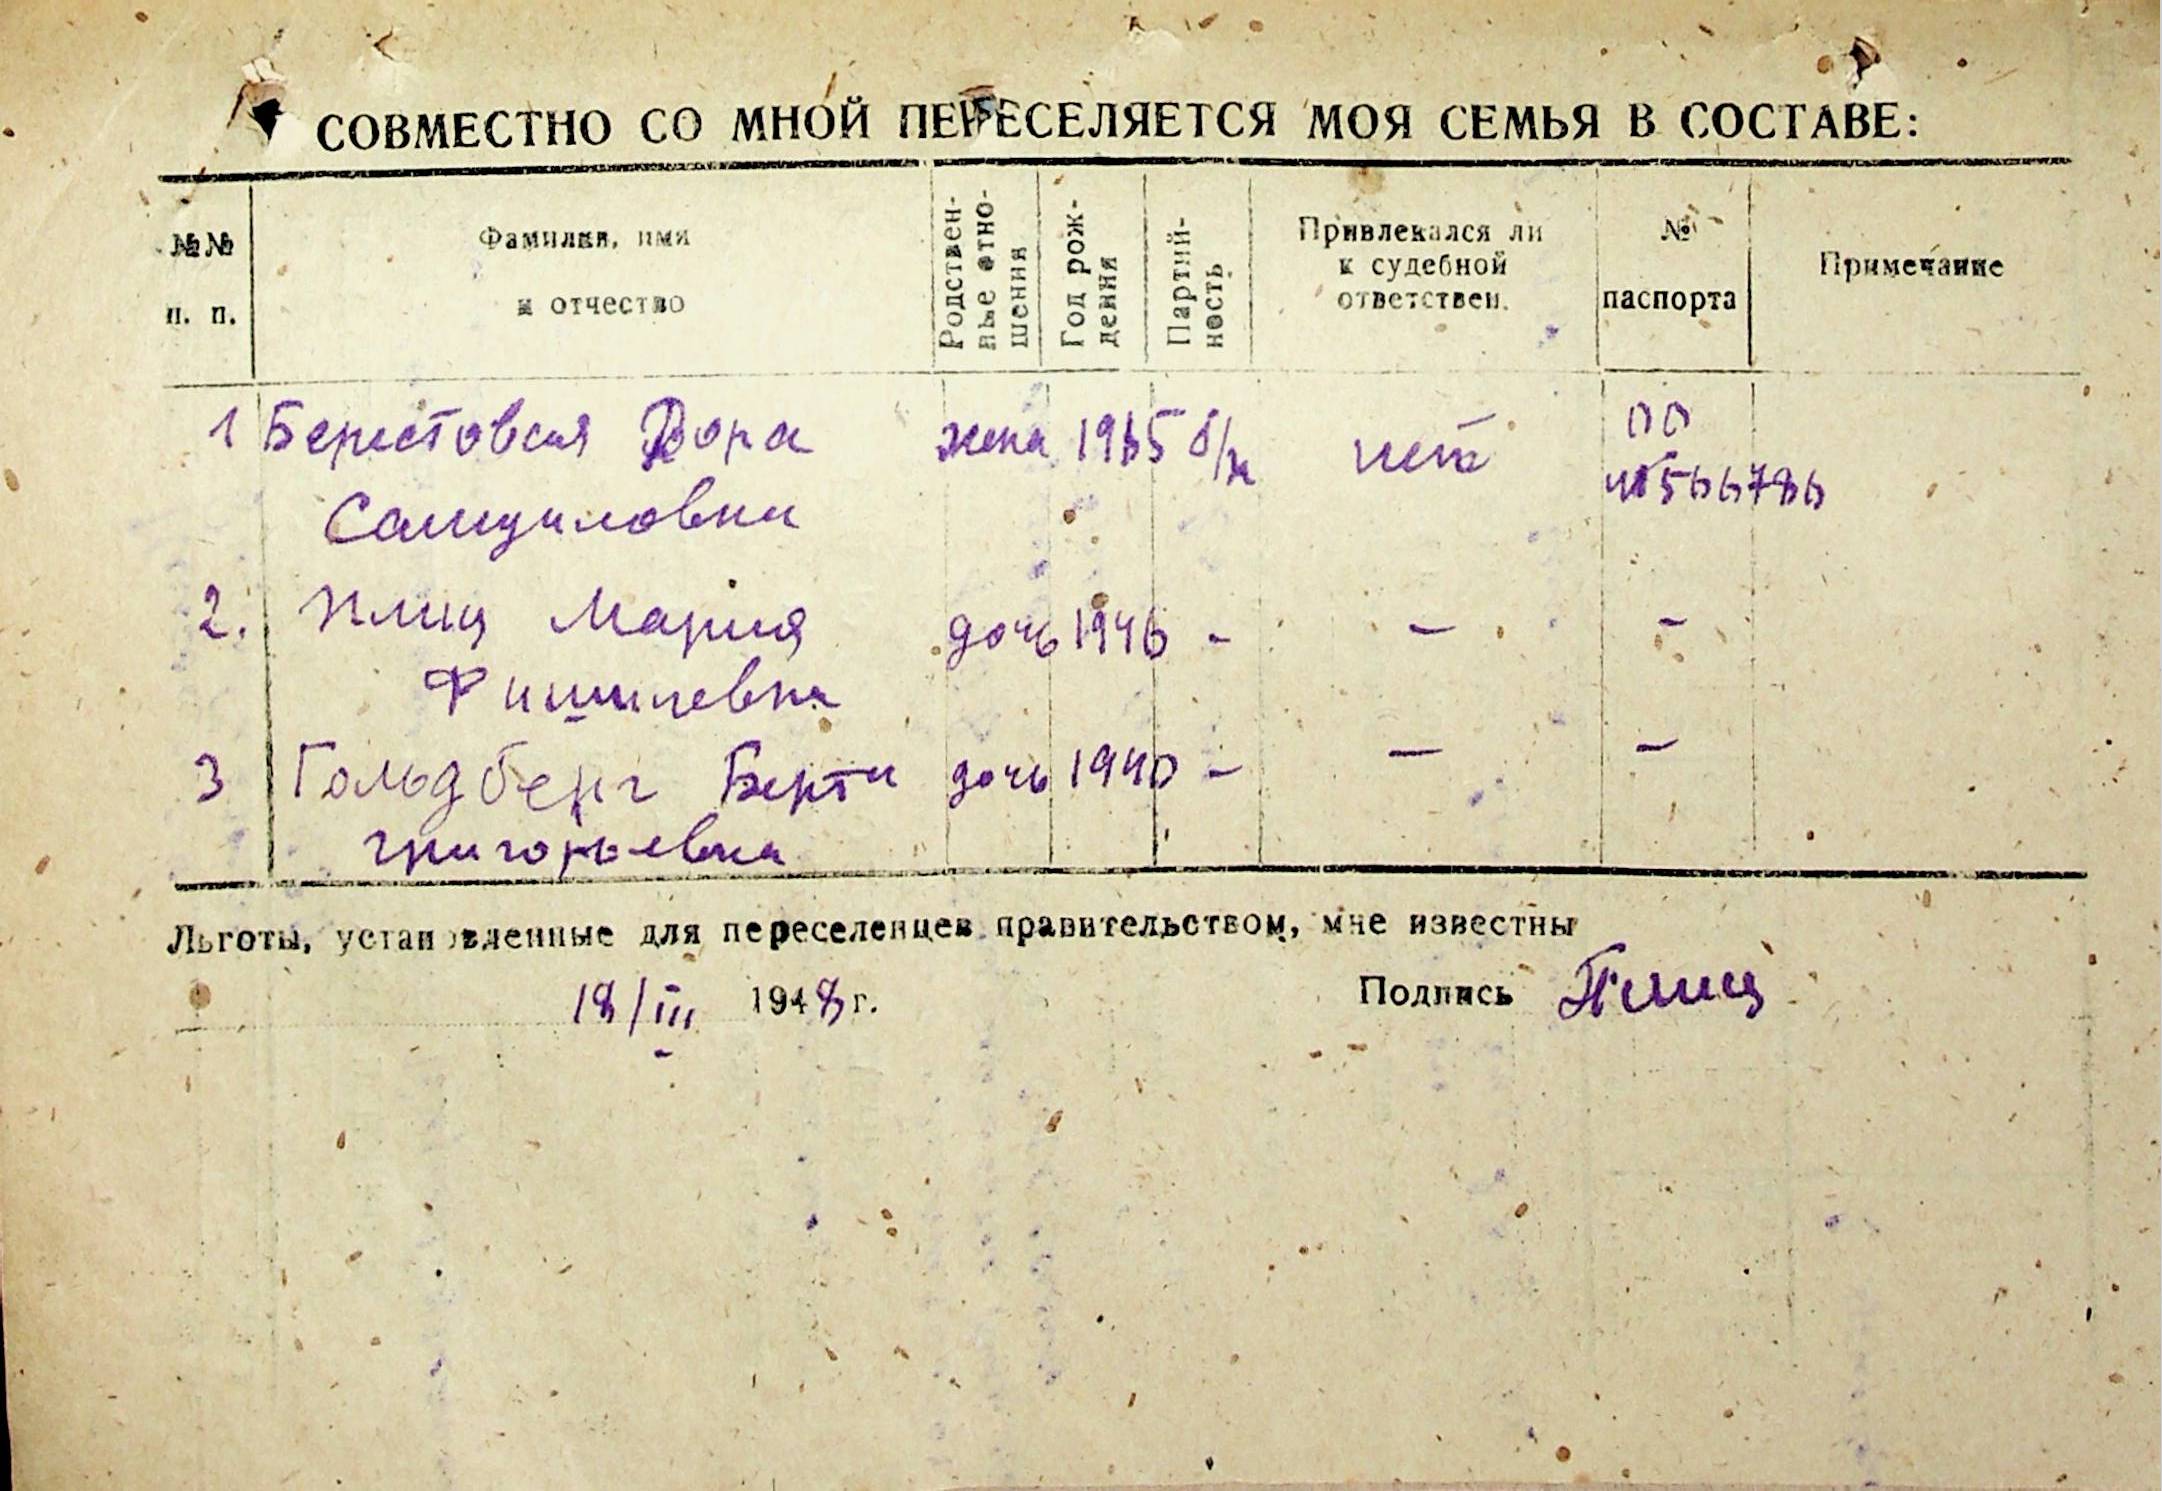 СОВМЕСТНО СО МНОЙ ПЕРЕСЕЛЯЕТСЯ МОЯ СЕМЬЯ В СОСТАВЕ:
№№ п. п.
Фамилия, имя и отчество
Родствен-
ные отно-
шения
Год рож-
дения
Партий-
ность
Привлекался ли
к судебной
ответствен.
№
паспорта
Примечание
1 Берестовская Дора жена б/п нет
Самуиловна
2. Плищ Мария дочь 1946 - - -
Фишилевна
3 Гольдберг Берта дочь 1940 - - -
Григорьевна
Льготы, установленные для переселенцев правительством, мне известны
18/III 1948 г. Подпись Плищ